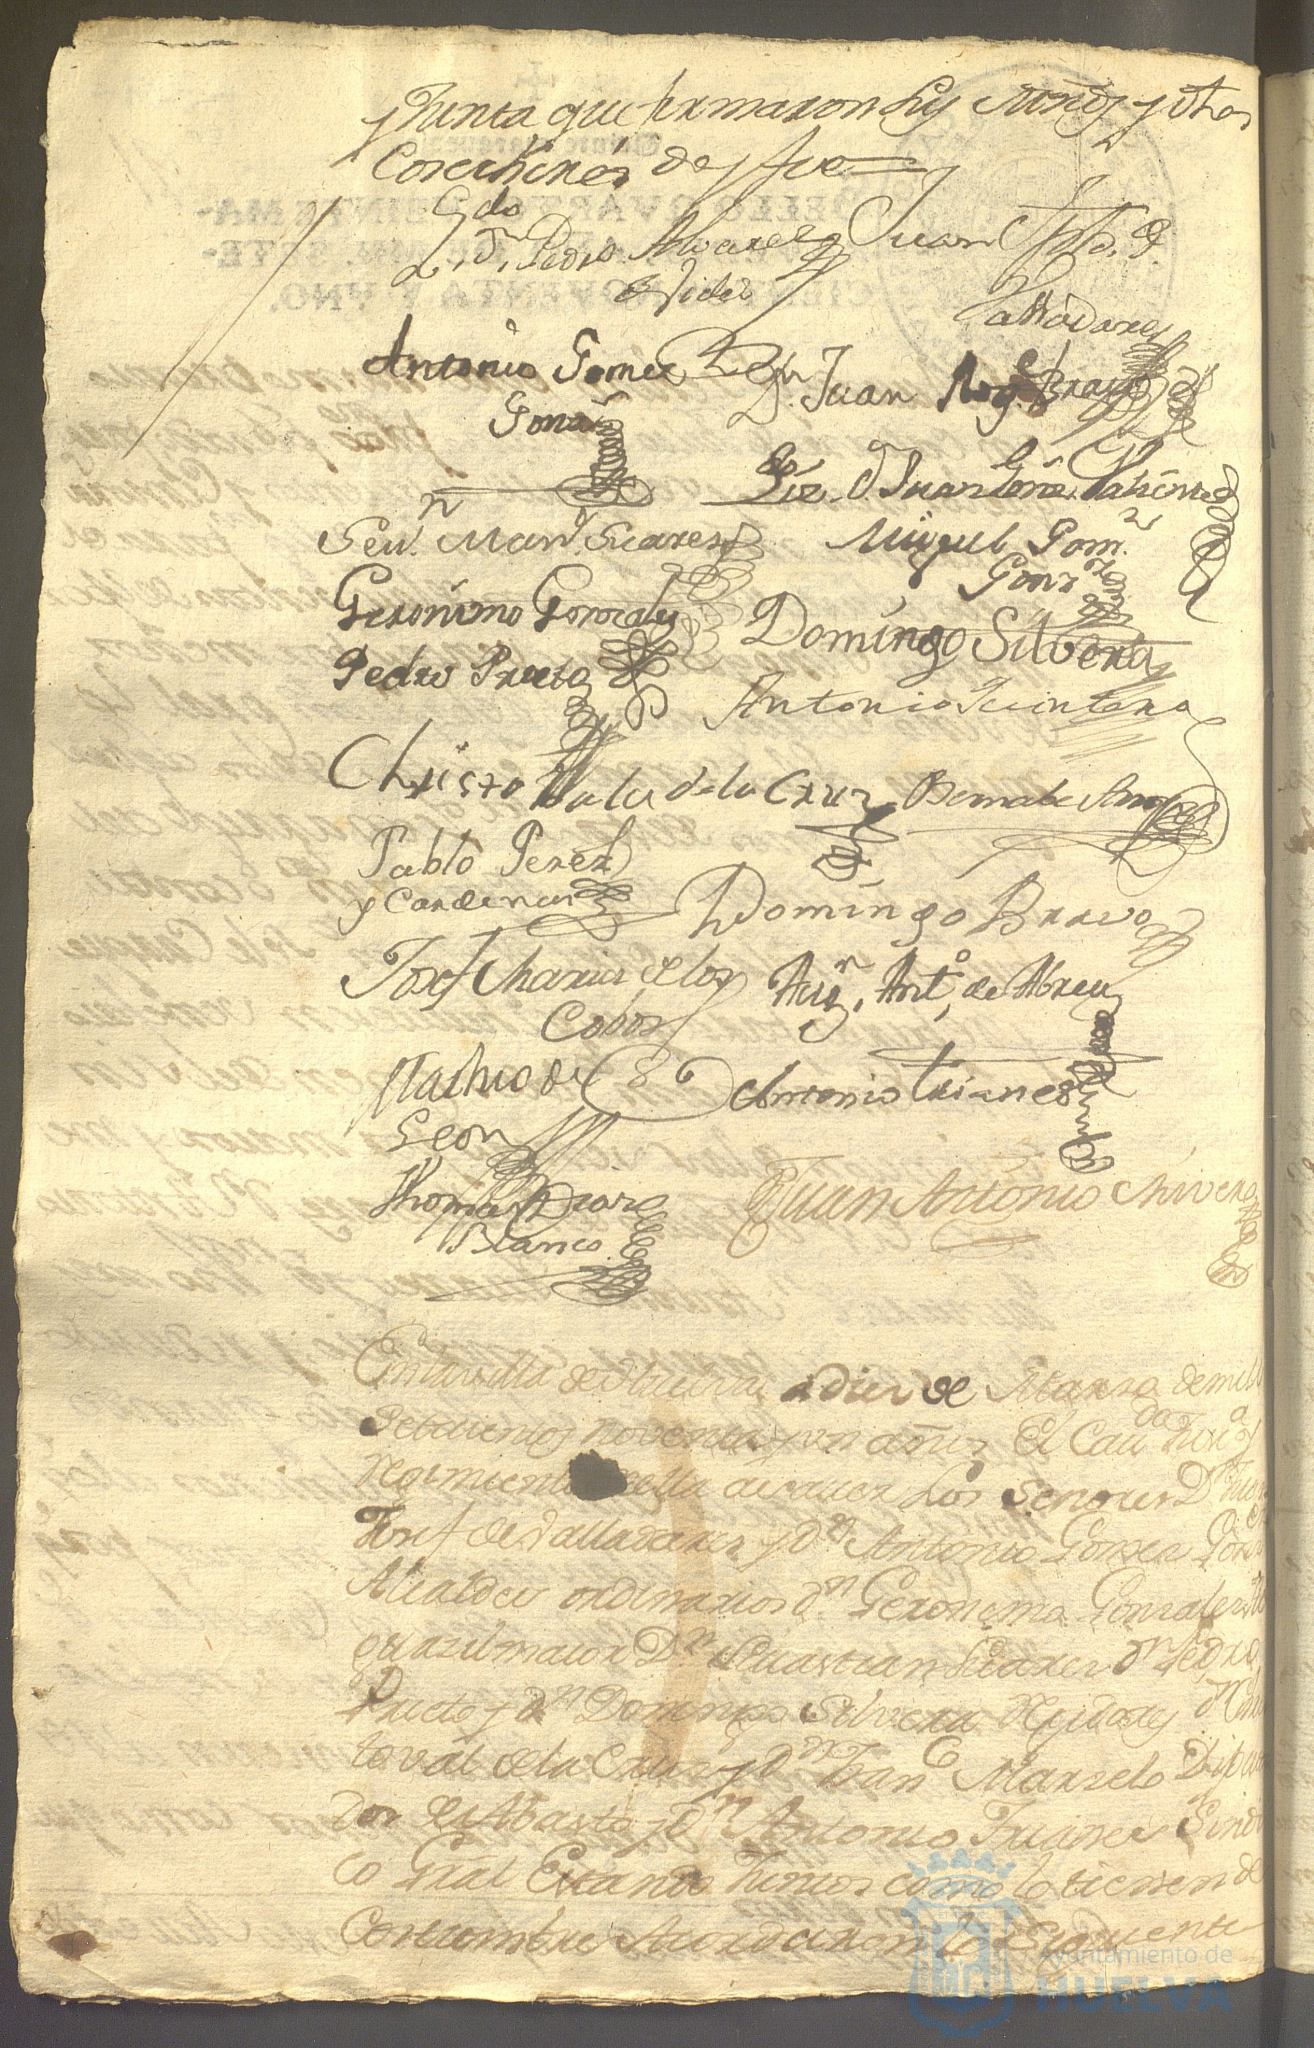 y Junta que firmaron sus mrds y dhos
Cosecheros doy fee
Lizdo Dn Pedro Alvarez
Vides
Juan Jph. d.
Valladares
Antonio Gomez
Gonz
Dn Juan Rog. Bravo
Liz. Dn Juan Valiente
Sevn. Manl. Suarez
Miguel Gomz
Gonz
Geronimo Gonzales
Domingo Silvera
Pedro Prieto
Antonio Quintero
Christoval de la Cruz
Bernabe
Pablo Perez
y Cardenas
Domingo Bravo
Josef Maria de los
Cobos
Agn. Anto. de Abreu
Mathio de
Leon
Antonio Trianes
Thomas
Blanco
Juan Antonio Rivera
En la villa de Huelva a dies de Marzo de mill
Setecientos noventa y un años El Cavdo Justa y
Regimiento de ella a saver Los Señores Dn Juan
Josef de Valladares y Dn Antonio Gomez Gonz
Alcaldes ordinarios dn Geronimo Gonzales Al
guazil maior Dn Sevastian Suares dn Pedro
Prieto y dn Domingo Silvera Rejidores dn Chris
toval de la Cruz y dn Franco Marzelo Diputa
dos de Abasto y dn Antonio Trianes Sindi
co Gral Estando Juntos como lo tienen de
Costumbre Acordaron lo Siguiente
Ayuntamiento de
HUELVA